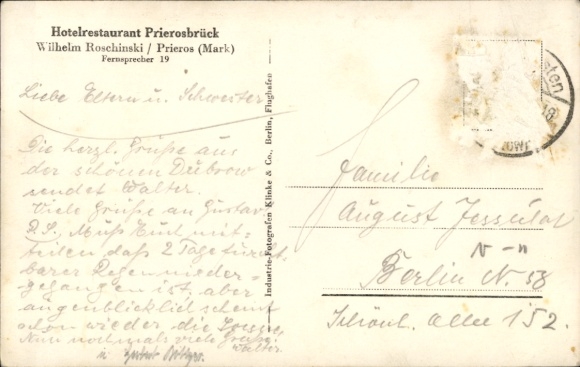 Hotelrestaurant Prierosbrück
Wilhelm Roschinski / Prieros (Mark)
Fernsprecher 19
Liebe Eltern u. Schwester
Die herzl. Grüße aus
der schönen Dubrow
sendet Walter.
Viele Grüße an Gustav
P.S. Muß Euch mit-
teilen daß 2 Tage furcht
barer Regen nieder-
gegangen ist, aber
augenblicklich scheint
schon wieder die Sonne
Nun nochmals viele Grüße
Walter
u.
Industrie-Fotografen Klinke & Co., Berlin, Flughafen
Familie
August
Berlin N. 58
Schönh. Allee 152.